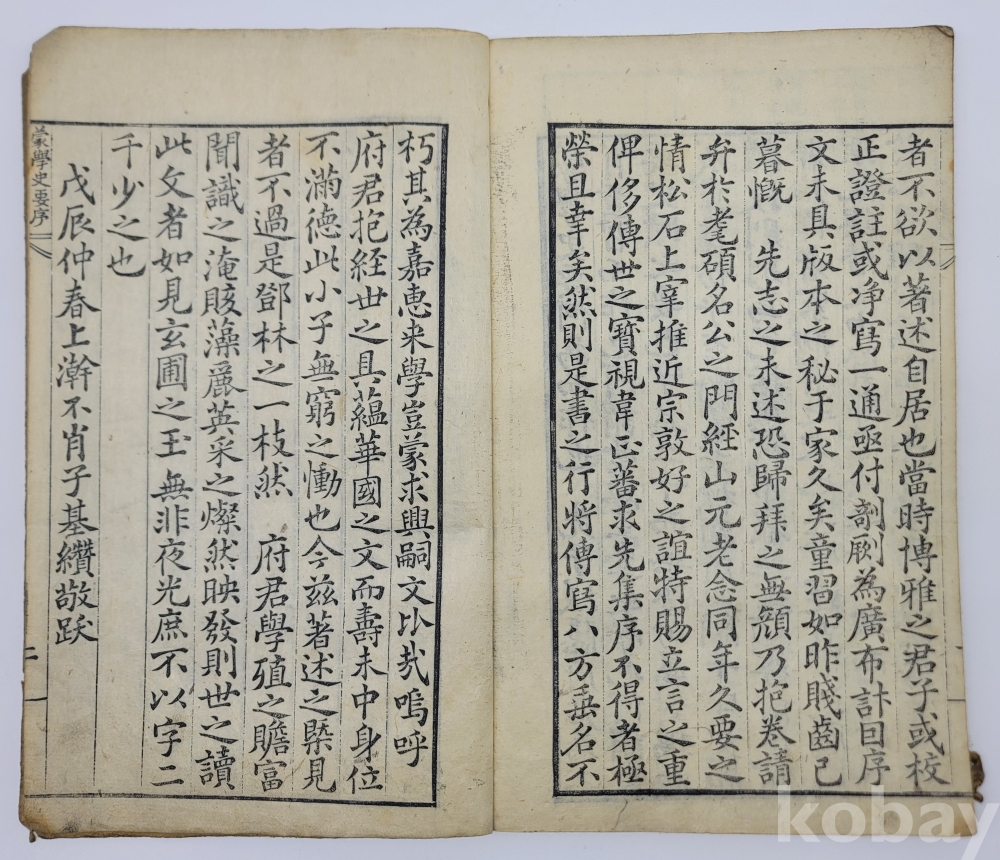 者不欲以著述自居也當時博雅之君子或校
正證註或净寫一通亟付剞劂為廣布計囙序
文未具版本之秘于家久矣童習如昨賤齒已
暮慨 先志之未述恐歸拜之無顔乃抱卷請
弁於耄碩名公之門經山元老念同年久要之
情松石上宰推近宗敦好之誼特賜立言之重
俾侈傳世之寶視韋丘蕃求先集序不得者極
榮且幸矣然則是書之行將傳寫八方垂名不
朽其為嘉惠来學豈蒙求興嗣文比㢤嗚呼
府君抱経世之具蘊華國之文而壽未中身位
不滿德此小子無窮之慟也今兹著述之槩見
者不過是鄧林之一枝然 府君學殖之贍富
聞識之淹賅藻麗英采之燦然映發則世之讀
此文者如見玄圃之玉無非夜光庶不以字二
千少之也
戊辰仲春上澣不肖子基纘敬跋
蒙學史要序
二
kobay